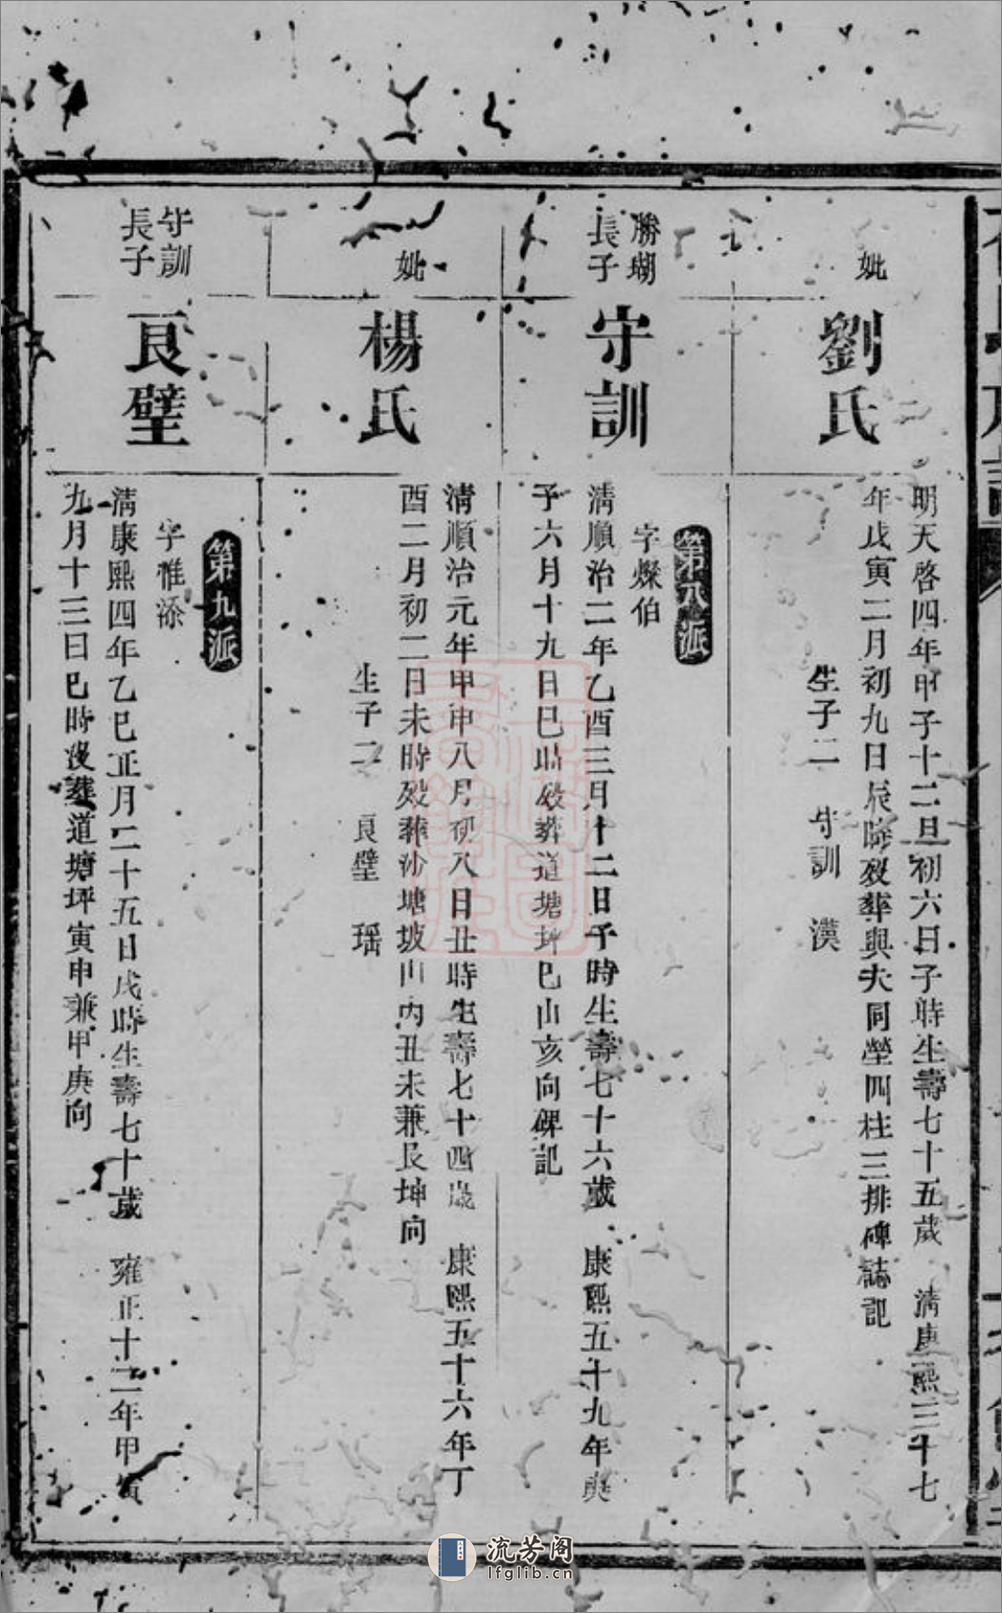 妣
劉氏
明天啓四年甲子十二月初六日子時生壽七十五歲　清康熙三十七
年戊寅二月初九日辰時歿葬與夫同塋四柱三排碑誌記
生子二　守訓　漢
勝瑚
長子
守訓
第八派
字燦伯
清順治二年乙酉三月十二日子時生壽七十六歲　康熙五十九年庚
子六月十九日巳時歿葬道塘坪巳山亥向碑記
妣
楊氏
清順治元年甲申八月初八日丑時生壽七十四歲　康熙五十六年丁
酉二月初二日未時歿葬沙塘坡山內丑未兼艮坤向
生子二　良璧　瑶
守訓
長子
良璧
第九派
字惟添
清康熙四年乙巳正月二十五日戌時生壽七十歲　雍正十二年甲寅
九月十三日巳時没葬道塘坪寅申兼甲庚向
流芳阁
lfglib.cn